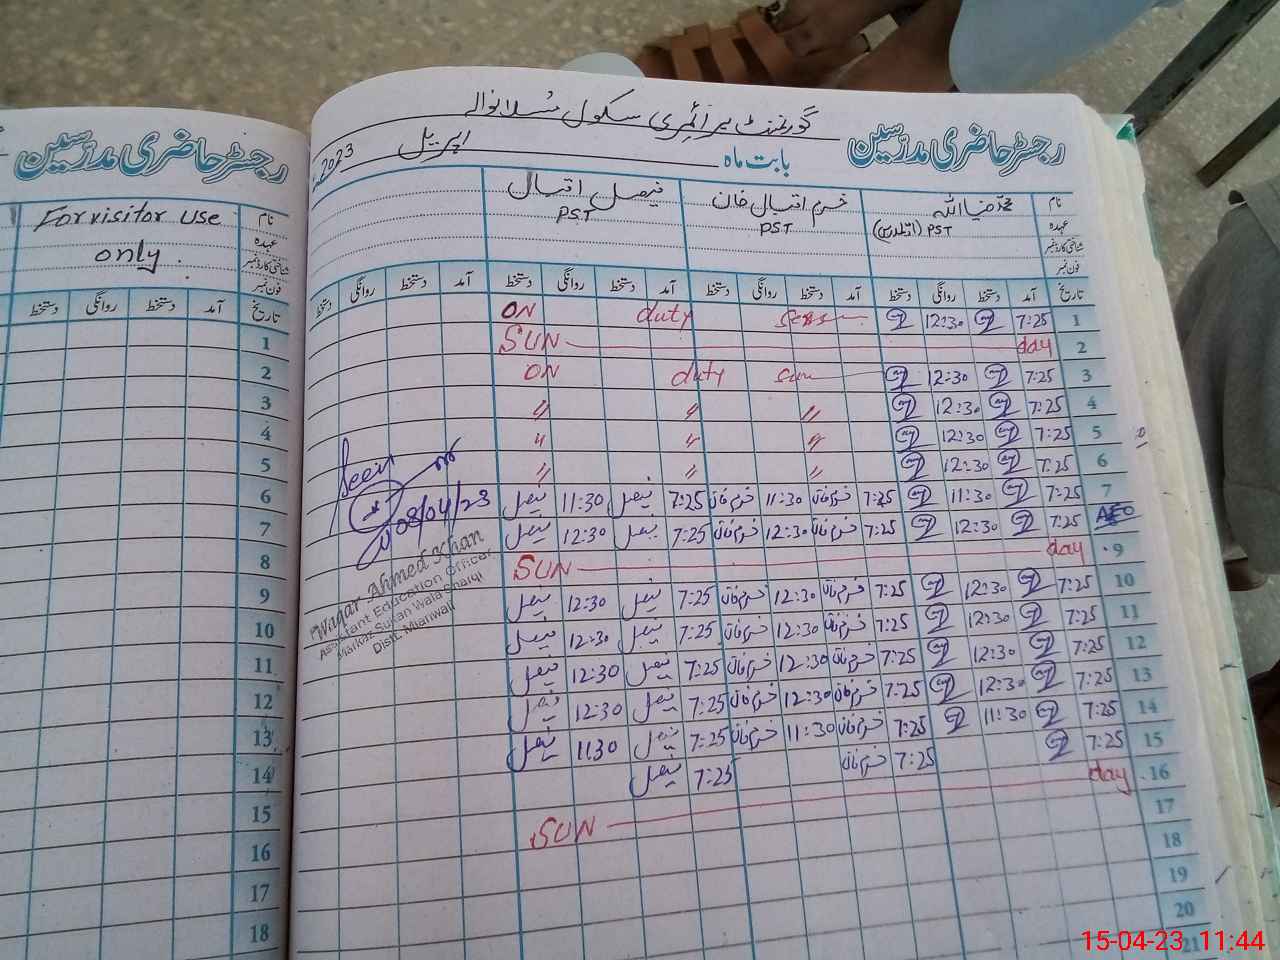 گورنمنٹ پرائمری سکول
رجسٹر حاضری مدرسین
بابت ماہ اپریل 2023ء
نام محمد ضیااللہ خرم اقبال خان فیصل اقبال
عہدہ PST PST PST
شناختی کارڈ نمبر
فون نمبر
تاریخ آمد دستخط روانگی دستخط آمد دستخط روانگی دستخط آمد دستخط روانگی دستخط آمد دستخط روانگی دستخط
1 7:25 12:30 ON duty
2 SUN day
3 7:25 12:30 ON duty
4 7:25 12:30 〃 〃 〃
5 7:25 12:30 〃 〃 〃
6 7:25 12:30 〃 〃 〃
7 7:25 11:30 7:25 خرم خان 11:30 خرم خان 7:25 فیصل 11:30 فیصل
AEO 7:25 12:30 7:25 خرم خان 12:30 خرم خان 7:25 فیصل 12:30 فیصل
9 SUN day
10 7:25 12:30 7:25 خرم خان 12:30 خرم خان 7:25 فیصل 12:30 فیصل
11 7:25 12:30 7:25 خرم خان 12:30 خرم خان 7:25 فیصل 12:30 فیصل
12 7:25 12:30 7:25 خرم خان 12:30 خرم خان 7:25 فیصل 12:30 فیصل
13 7:25 12:30 7:25 خرم خان 12:30 خرم خان 7:25 فیصل 12:30 فیصل
14 7:25 11:30 7:25 خرم خان 11:30 خرم خان 7:25 فیصل 11:30 فیصل
15 7:25 7:25 خرم خان 7:25 فیصل
16 SUN day
17
18
19
20
21
Seen
08/04/23
Waqar Ahmed Khan
Assistant Education Officer
Markaz Sultan Wala Sharqi
Distt. Mianwali
رجسٹر حاضری مدرسین
نام For visitor use
عہدہ only.
شناختی کارڈ نمبر
فون نمبر
تاریخ آمد دستخط روانگی دستخط
1
2
3
4
5
6
7
8
9
10
11
12
13
14
15
16
17
18
15-04-23 11:44